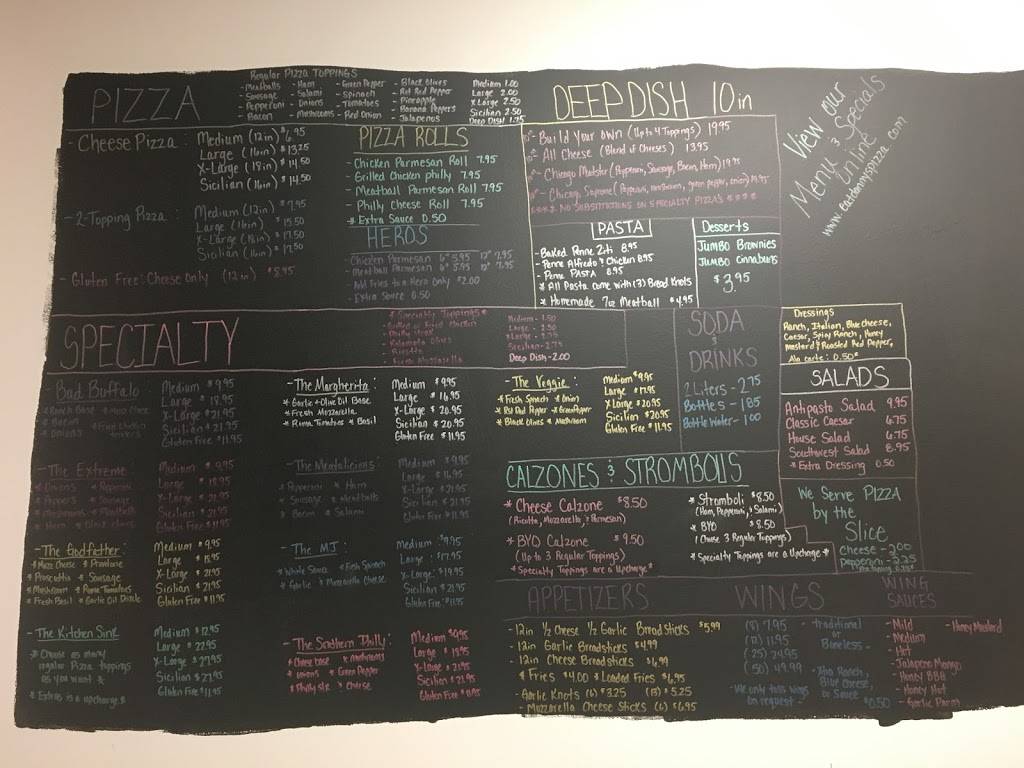 PIZZA
Regular PIZZA TOPPINGS
- Meatballs - Ham - Green Pepper - Black Olives
- Sausage - Salami - Spinach - Hot Red Pepper
- Pepperoni - Onions - Tomatoes - Pineapple
- Bacon - Mushrooms - Red Onion - Banana Peppers
- Jalapenos
Medium 1.00
Large 2.00
X-Large 2.50
Sicilian 2.50
Deep Dish 1.75
- Cheese Pizza: Medium (12in) $6.95
Large (16in) $13.25
X-Large (18in) $14.50
Sicilian (16in) $14.50
- 2-Topping Pizza: Medium (12in) $7.95
Large (16in) $15.50
X-Large (18in) $17.50
Sicilian (16in) $17.50
- Gluten Free: Cheese Only (12in) $8.95
PIZZA ROLLS
- Chicken Parmesan Roll 7.95
- Grilled Chicken philly 7.95
- Meatball Parmesan Roll 7.95
- Philly Cheese Roll 7.95
* Extra Sauce 0.50
HEROS
- Chicken Parmesan 6" 5.95 12" 7.95
- Meatball Parmesan 6" 5.95 12" 7.95
- Add Fries to a Hero Only $2.00
- Extra Sauce 0.50
DEEP DISH 10in
Build Your Own (Up to 4 Toppings) 19.95
All Cheese (Blend of Cheeses) 13.95
Chicago Meatstar (Pepperoni, Sausage, Bacon, Ham) 19.95
Chicago Supreme (Pepperoni, mushrooms, green pepper, onion) 19.95
NO SUBSTITUTIONS ON SPECIALTY PIZZA'S
PASTA
- Baked Penne Ziti 8.95
- Penne Alfredo & Chicken 8.95
- Penne PASTA 8.95
* All Pasta come with (3) Bread Knots
* Homemade 7oz Meatball $4.95
Desserts
JUMBO Brownies
JUMBO Cinnabuns
$3.95
View our
Menu & Specials
Online
www.eatdannyspizza.com
SPECIALTY
* Specialty Toppings *
- Grilled or Fried Chicken
- Philly Steak
- Kalamata Olives
- Ricotta
- Fresh Mozzarella
Medium - 1.50
Large - 2.50
X-Large - 2.75
Sicilian - 2.75
Deep Dish - 2.00
- Bad Buffalo: Medium $9.95
Large $18.95
X-Large $21.95
Sicilian $21.95
Gluten Free $11.95
* Ranch Base
* Bacon
* Onions
- The Margherita: Medium $9.95
* Garlic & Olive Oil Base Large $16.95
* Fresh Mozzarella X-Large $20.95
* Roma Tomatoes * Basil Sicilian $20.95
Gluten Free $11.95
- The Veggie: Medium $9.95
* Fresh Spinach * Onion Large $17.95
* Hot Red Pepper * Green Pepper X-Large $20.95
* Black Olives * Mushroom Sicilian $20.95
Gluten Free $11.95
- The Extreme: Medium $9.95
* Onions * Pepperoni Large $18.95
* Peppers * Sausage X-Large $21.95
* Mushrooms * Meatballs Sicilian $21.95
* Ham * Black Olives Gluten Free $11.95
- The Meatalicious: Medium $9.95
* Pepperoni * Ham
* Sausage * Meatballs X-Large $21.95
* Bacon * Salami Sicilian $21.95
Gluten Free $11.95
- The Godfather: Medium $9.95
* Mozz Cheese * Provolone Large
* Prosciutto * Sausage X-Large $21.95
* Mushroom * Roma Tomatoes Sicilian $21.95
* Fresh Basil * Garlic Oil Drizzle Gluten Free $11.95
- The MJ: Medium $9.95
* White Sauce * Fresh Spinach Large $17.95
* Garlic * Mozzarella Cheese X-Large $19.95
Sicilian $19.95
Gluten Free $11.95
- The Kitchen Sink: Medium $12.95
* Choose as many Large $22.95
regular Pizza toppings X-Large $27.95
as you want * Sicilian $27.95
* Extras is a upcharge * Gluten Free $11.95
- The Southern Philly: Medium $9.95
* Cheese base * Mushrooms Large
* Onions * Green Pepper X-Large $21.95
* Philly Stk * Cheese Sicilian $21.95
Gluten Free $11.95
SODA
&
DRINKS
2 Liters - 2.75
Bottles - 1.85
Bottle Water - 1.00
Dressings
Ranch, Italian, Blue cheese,
Caesar, Spicy Ranch, Honey
Mustard & Roasted Red Pepper,
Ala carte: 0.50*
SALADS
Antipasto Salad 9.95
Classic Caesar 6.75
House Salad 6.75
Southwest Salad 8.95
* Extra Dressing 0.50
CALZONES & STROMBOLIS
* Cheese Calzone $8.50
(Ricotta, Mozzarella, & Parmesan)
* BYO Calzone $9.50
(Up to 3 Regular Toppings)
* Specialty Toppings are a Upcharge *
* Stromboli $8.50
(Ham, Pepperoni, & Salami)
* BYO $8.50
(Choose 3 Regular Toppings)
* Specialty Toppings are a Upcharge *
We Serve PIZZA
by the
Slice
Cheese - 2.00
Pepperoni - 2.25
APPETIZERS
- 12in 1/2 Cheese 1/2 Garlic Breadsticks $5.99
- 12in Garlic Breadsticks $4.99
- 12in Cheese Breadsticks $6.99
* Fries $4.00 * Loaded Fries $6.95
- Garlic Knots (6) $3.25 (12) $5.25
- Mozzarella Cheese Sticks (6) $6.95
WINGS
(8) 7.95
(12) 11.95
(25) 24.95
(50) 49.99
- We only toss wings
on request -
- Traditional
or
Boneless -
- Xtra Ranch,
Blue Cheese,
or Sauce -
$0.50
WING
SAUCES
- Mild - Honey Mustard
- Medium
- Hot
- Jalapeno Mango
- Honey BBQ
- Honey Hot
- Garlic Parm